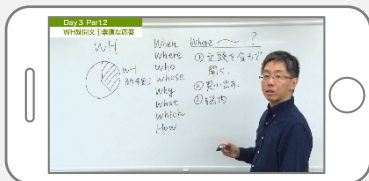 Day3 Part2
WH疑問文|素直な応答
WH
WH
3分4割
When
Where
Who
Whose
Why
What
Which
How
Where 〜 ?
①文頭を全力で
聞く.
②
③